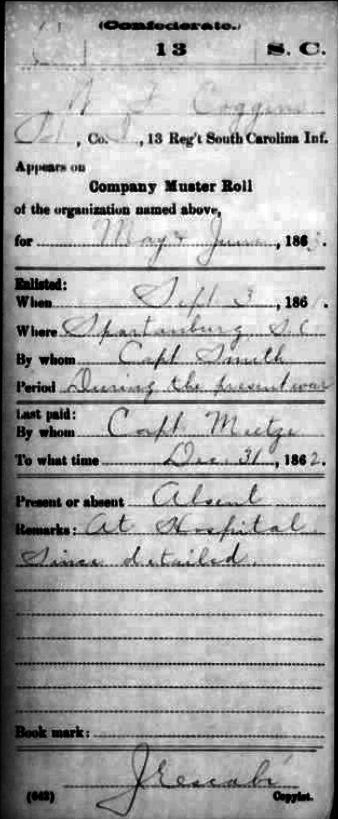 (Confederate.)
13 S. C.
Coggins
, Co. , 13 Reg't South Carolina Inf.
Appears on
Company Muster Roll
of the organization named above,
for May & June, 1863.
Enlisted:
When Sept 3, 186
Where Spartanburg S.C.
By whom Capt Smith
Period During the present war
Last paid:
By whom Capt Meetze
To what time Dec. 31, 1862.
Present or absent Absent
Remarks: At Hospital
Since detailed.
Book mark:
(642) Copyist.